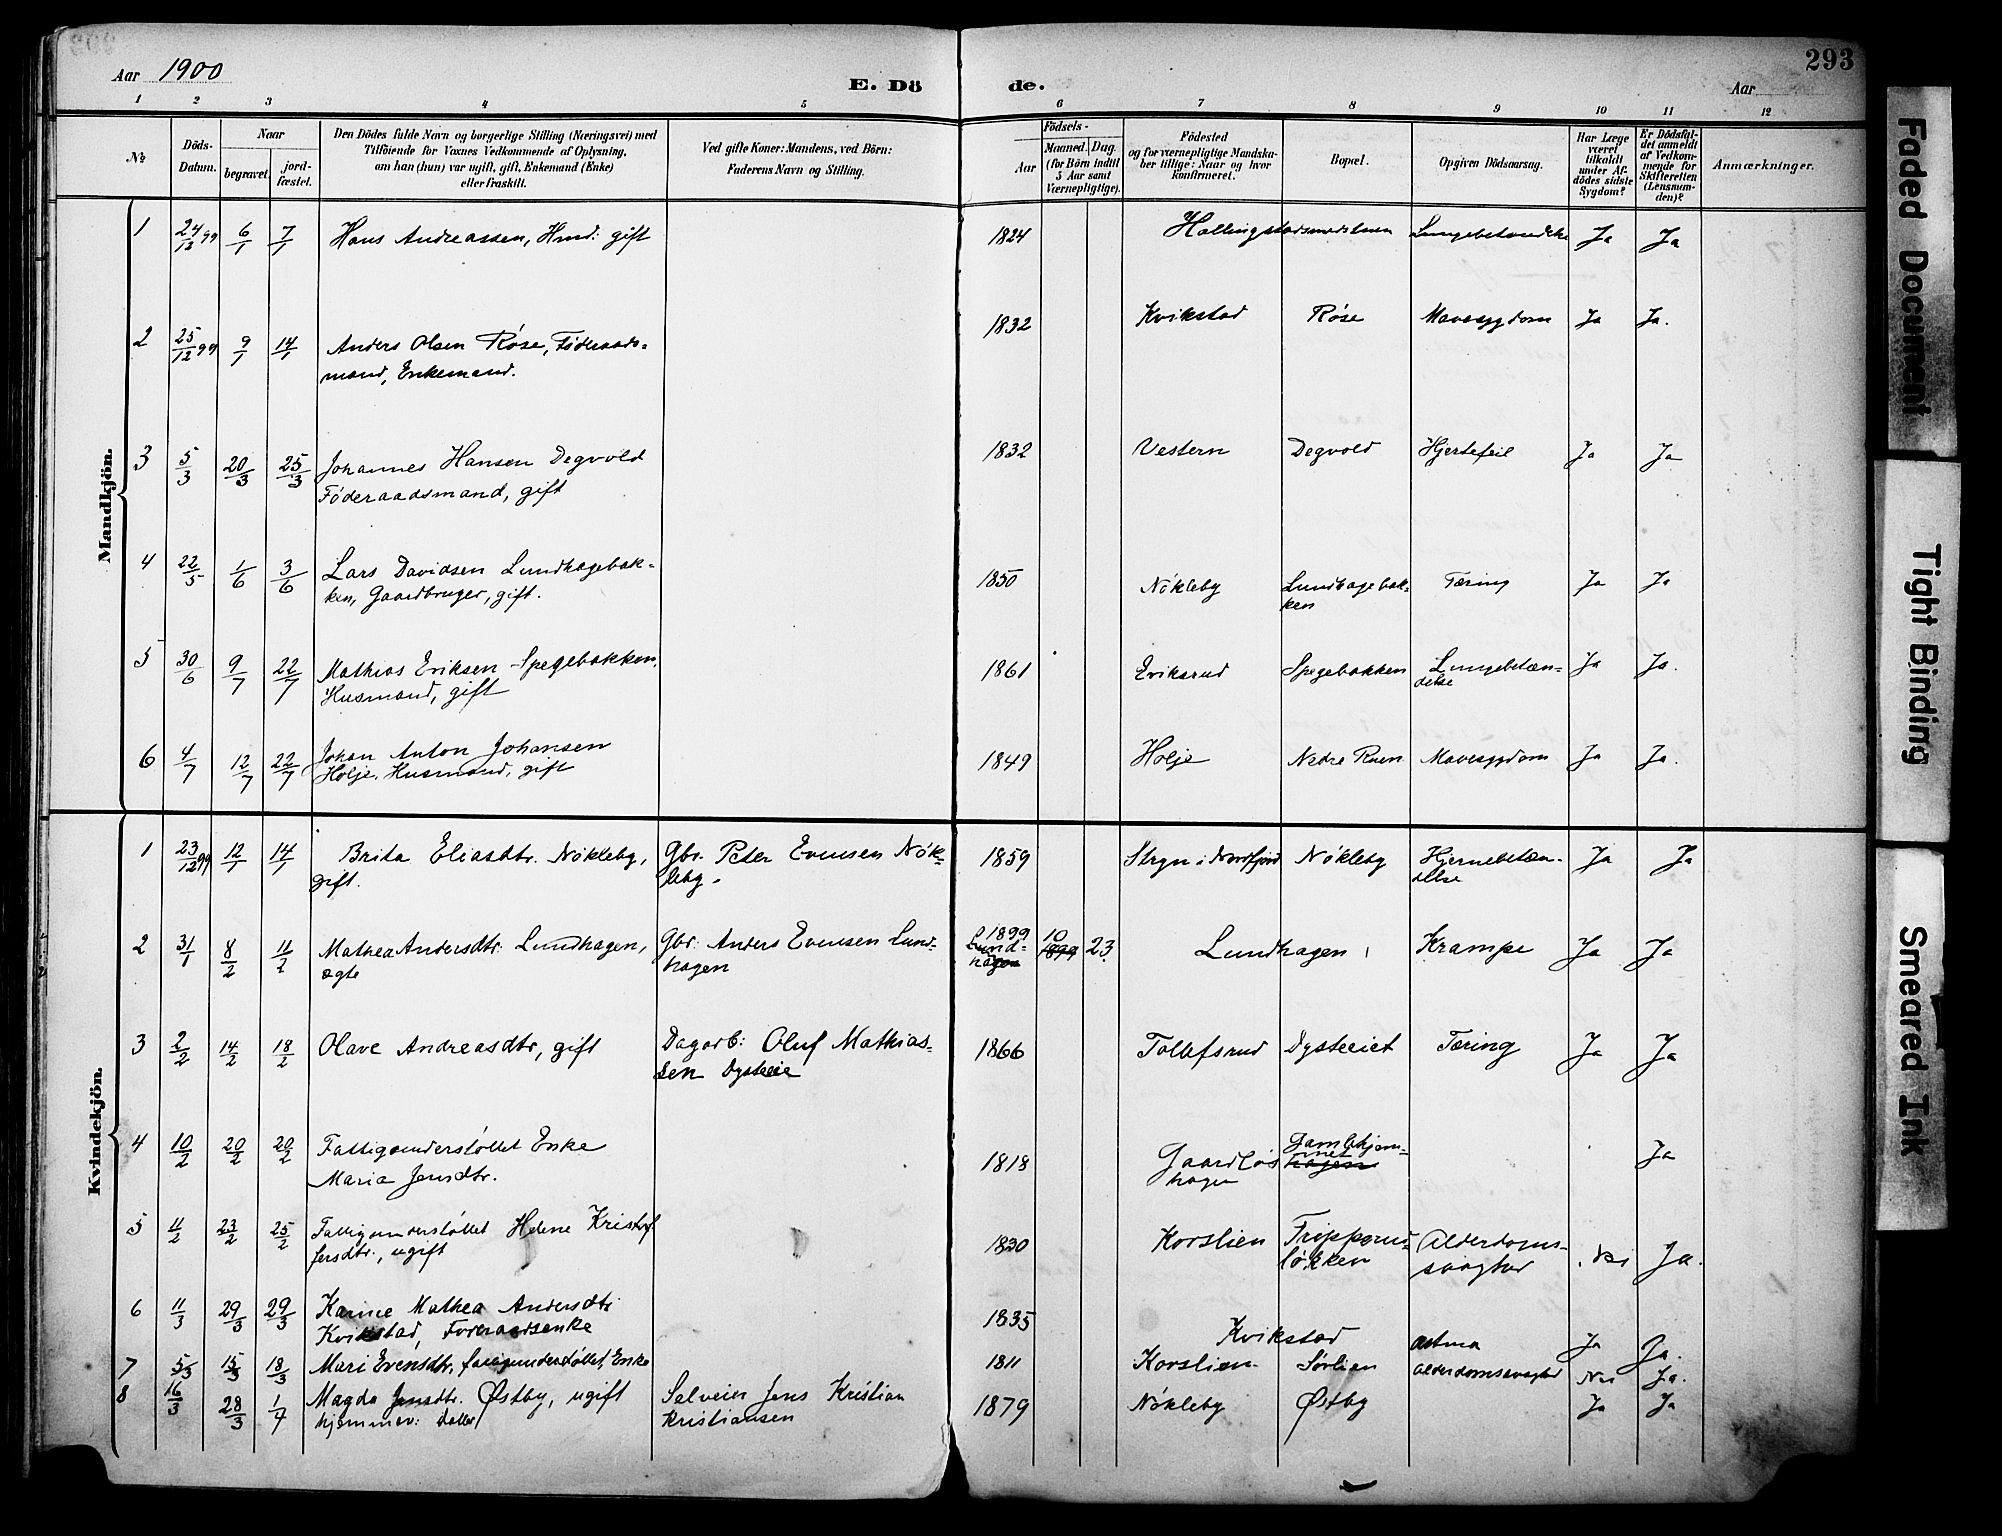 Aar 1900
E. Dö
de.
Aar
293
1 2 3 4 5 6 7 8 9 10 11 12
No
Döds-
Datum.
Naar
begravet.
jord-
fæstet.
Den Dödes fulde Navn og borgerlige Stilling (Næringsvei) med
Tilföiende for Voxnes Vedkommende af Oplysning,
om han (hun) var ugift, gift, Enkemand (Enke)
eller fraskilt.
Ved gifte Koner: Mandens, ved Börn:
Faderens Navn og Stilling.
Födsels-
Aar
Maaned. Dag.
(for Börn indtil
5 Aar samt
Værnepligtige).
Födested
og for værnepligtige Mandska-
ber tillige: Naar og hvor
konfirmeret.
Bopæl.
Opgiven Dödsaarsag.
Har Læge
været
tilkaldt
under Af-
dödes sidste
Sygdom?
Er Dödsfal-
det anmeldt
af Vedkom-
mende for
Skifteretten
(Lensman-
den)?
Anmærkninger.
Mandkjön.
1 24/12 99 6/1 7/1 Hans Andreassen, Hmd: gift 1824 Ja Ja
2 25/12 99 9/1 14/1 Anders Olsen Røse, Føderaads-
mand, Enkemand. 1832 Kvikstad Røse Mavesygdom Ja Ja.
3 5/3 20/3 25/3 Johannes Hansen Degvold
Føderaadsmand, gift 1832 Vestern Degvold Hjertefeil Ja Ja
4 22/5 1/6 3/6 Lars Davidsen Lundhagebak-
ken, Gaardbruger, gift. 1850 Nøkleby Lundhagebak-
ken Tæring Ja Ja
5 30/6 9/7 22/7 Mathias Eriksen Spegebakken,
Husmand, gift 1861 Eriksrud Spegebakken Lungebetæn-
delse Ja Ja.
6 4/7 12/7 22/7 Johan Anton Johansen
Holje, Husmand, gift 1849 Holje Nedre Ruen Mavesygdom Ja Ja.
Kvindekjön.
1 23/12 99 12/1 14/1 Brita Eliasdtr. Nøkleby,
gift. Gbr. Peter Evensen Nøk-
leby. 1859 Stryn i Nordfjord Nøkleby Hjernebetæn-
delse Ja Ja
2 31/1 8/2 11/2 Mathea Andersdtr. Lundhagen,
ægte Gbr: Anders Evensen Lund-
hagen 1899
Lund-
hagen 10
1899 23. Lundhagen Krampe Ja Ja
3 2/2 14/2 18/2 Olave Andreasdtr, gift Dagarb: Oluf Mathias-
sen Dysteeie 1866 Tollefsrud Dysteeiet Tæring Ja Ja
4 10/2 20/2 20/2 Fattigunderstøttet Enke
Maria Jensdtr. 1818 Gaardløs
hagen Gamlehjem-
met
hagen Ja
5 11/2 23/2 25/2 Fattigunderstøttet Helene Kristof
fersdtr., ugift 1830 Korslien
løkken Alderdoms-
svaghed Nei Ja.
6 11/3 29/3 29/3 Karine Mathea Andersdtr
Kvikstad, Føderaadsenke 1835 Kvikstad Astma Ja Ja.
7 5/3 15/3 18/3 Mari Evensdtr, fattigunderstøttet Enke 1811 Korslien Sørlien Alderdomssvaghed Nei Ja.
8 16/3 28/3 1/4 Magda Jensdtr. Østby, ugift
hjemmev: Datter Selveier Jens Kristian
Kristiansen 1879 Nøkleby Østby Ja Ja
Faded Document
Tight Binding
Smeared Ink